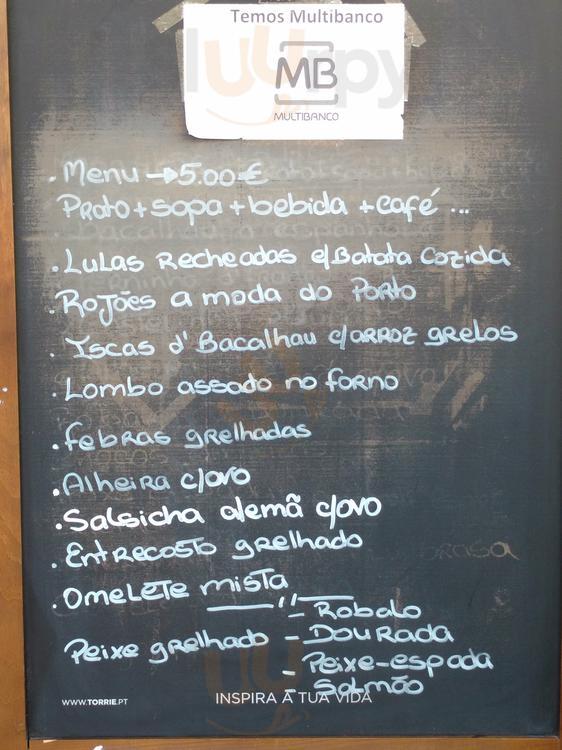 Temos Multibanco
MB
MULTIBANCO
. Menu → 5.00 €
Prato + sopa + bebida + café ...
. Lulas Recheadas c/Batata Cozida
. Rojões a moda do Porto
. Iscas d' Bacalhau c/arroz grelos
. Lombo assado no forno
. febras grelhadas
. Alheira c/ovo
. Salsicha alemã c/ovo
. Entrecosto grelhado
. Omelete mista
— " —
Peixe grelhado - Robalo
- Dourada
- Peixe-espada
- Salmão
WWW.TORRIE.PT
INSPIRA A TUA VIDA